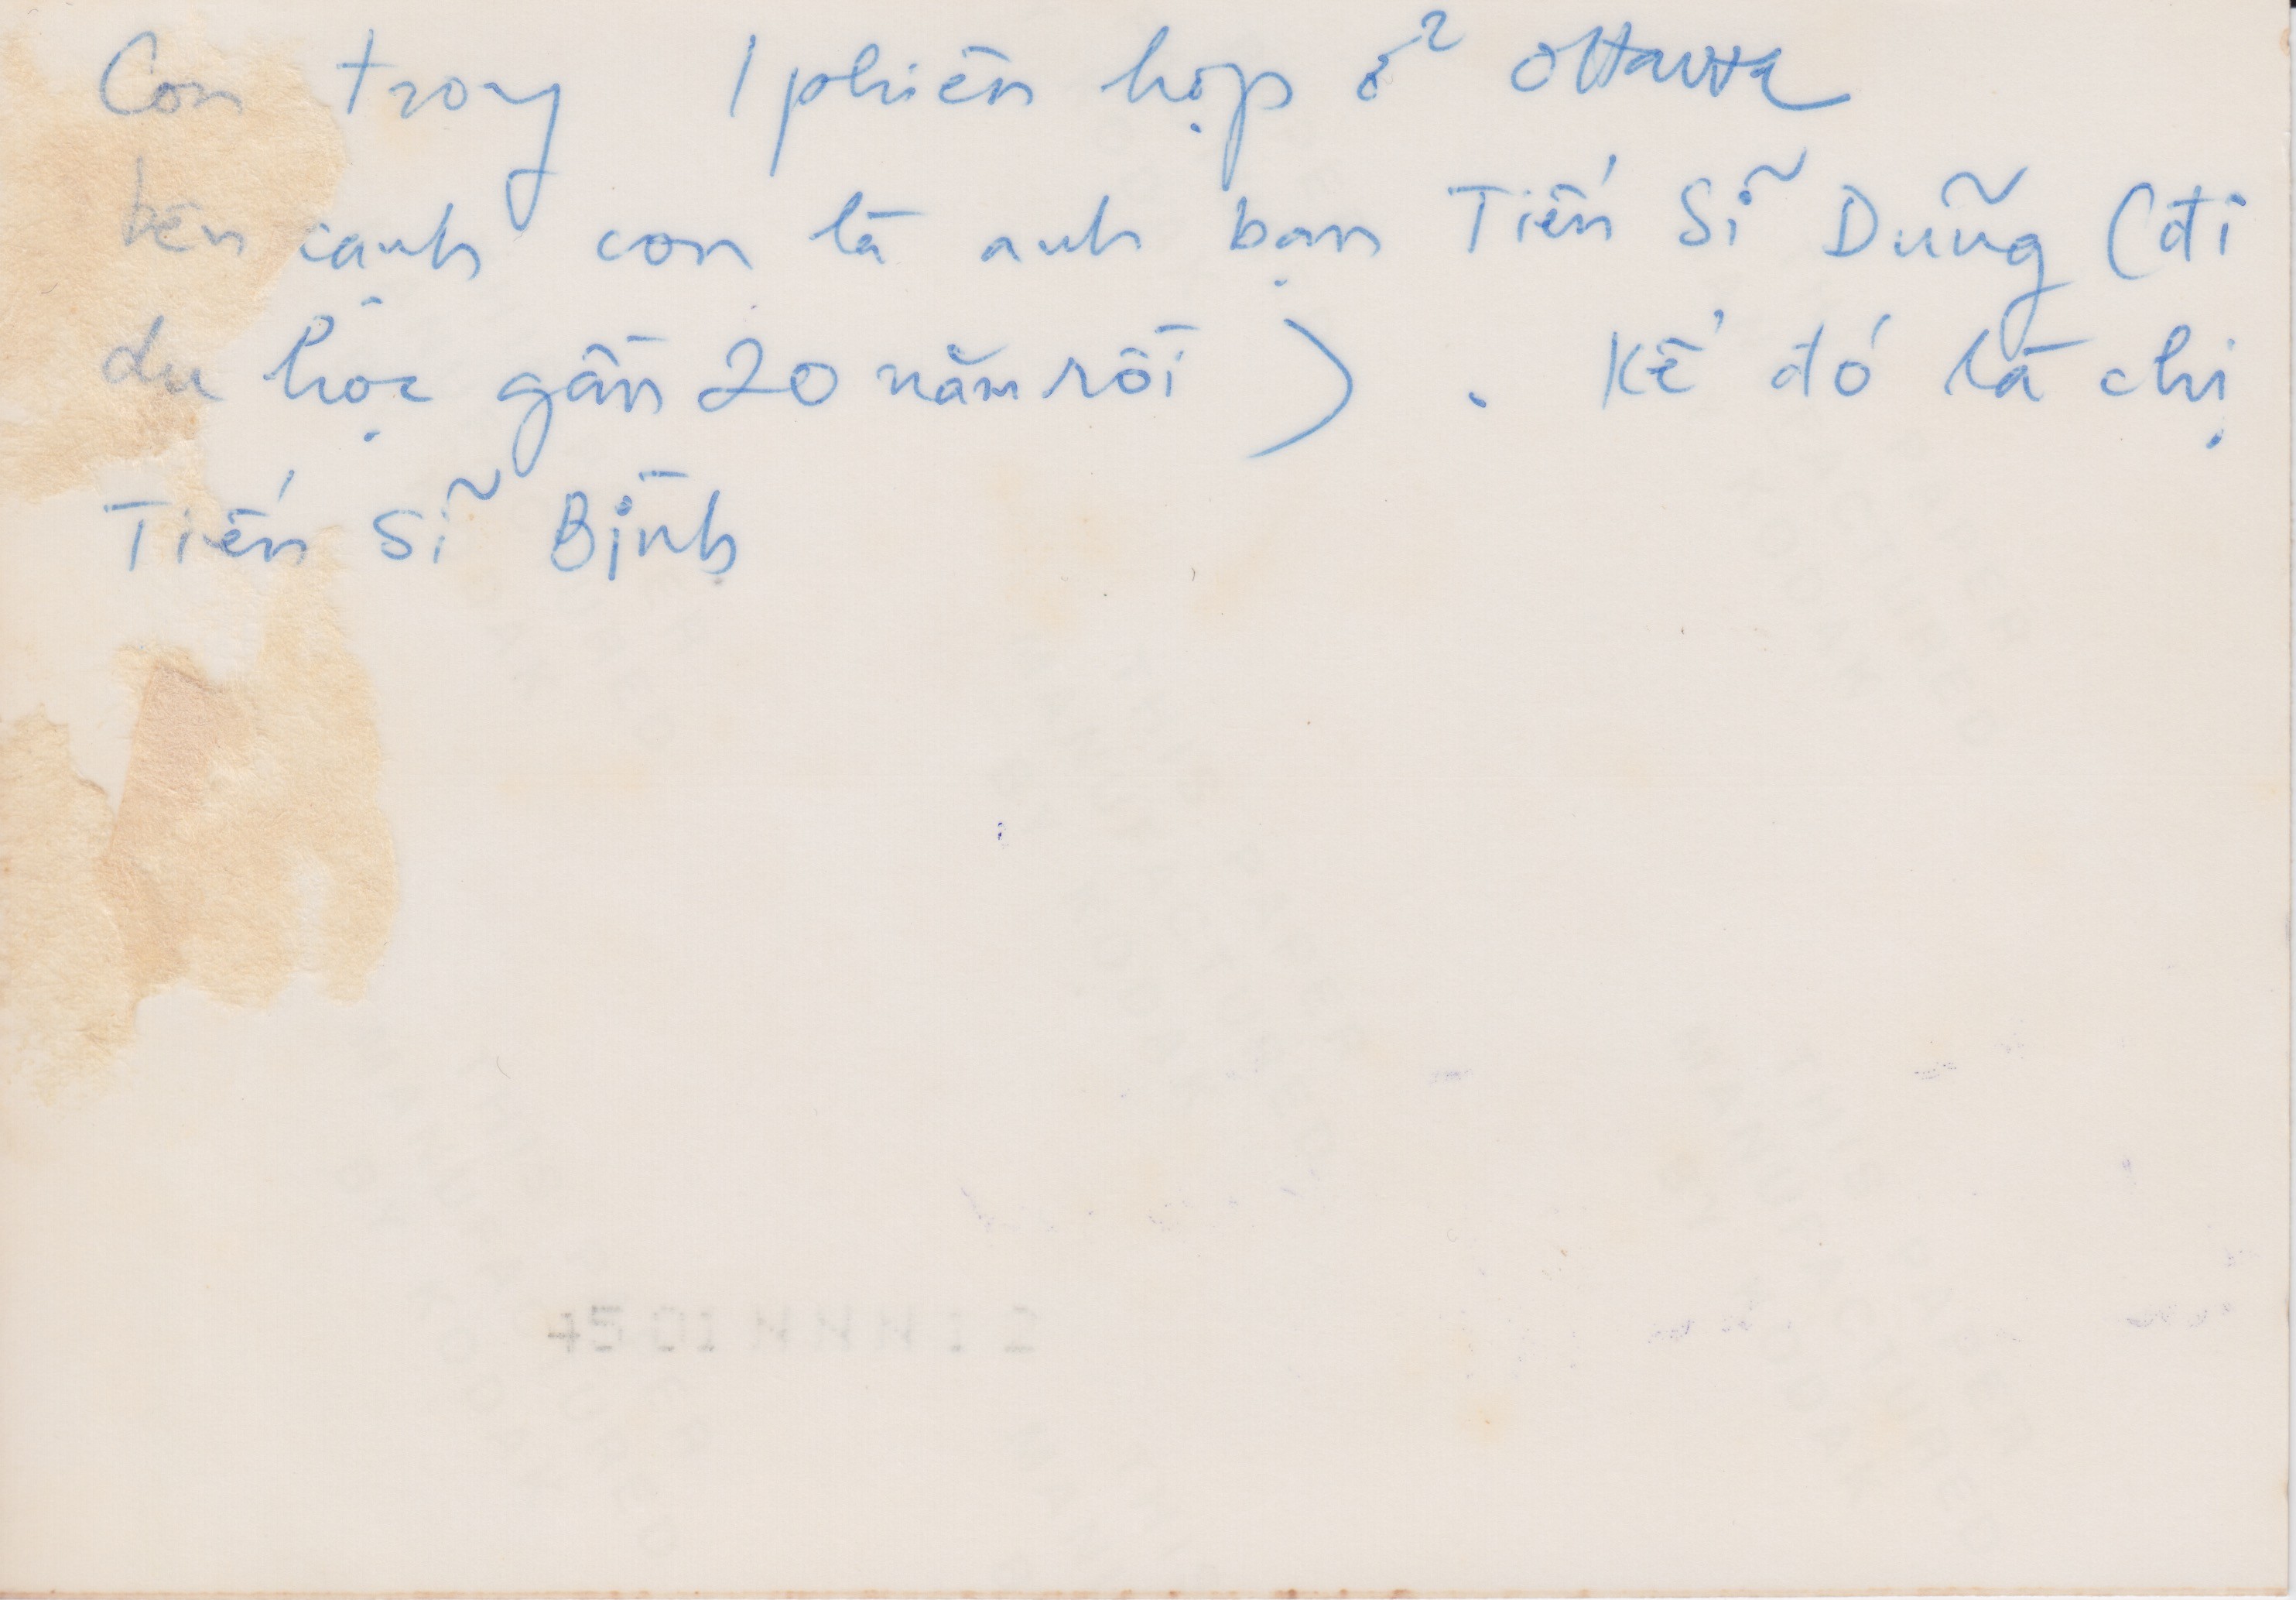 Con trong 1 phiên họp ở Ottawa
bên cạnh con là anh bạn Tiến Sĩ Dũng (đi
du học gần 20 năm rồi). Kế đó là chị
Tiến Sĩ Bình